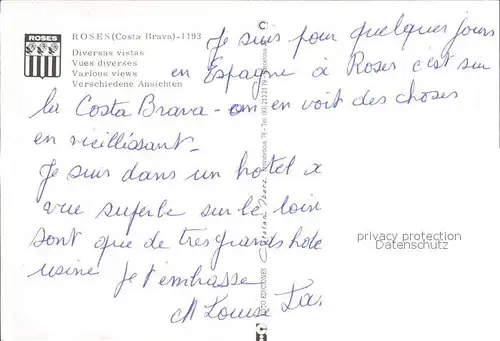 ROSES
ROSES (Costa Brava)-1193
Diversas vistas
Vues diverses
Various views
Verschiedene Ansichten
Je suis pour quelques jours
en Espagne à Roses c'est sur
la Costa Brava - on en voit des choses
en vieillissant -
Je suis dans un hotel
vue superbe sur le loin
sont que de tres grands hote
usine Je t'embrasse
M Louise
EDICIONES
privacy protection
Datenschutz